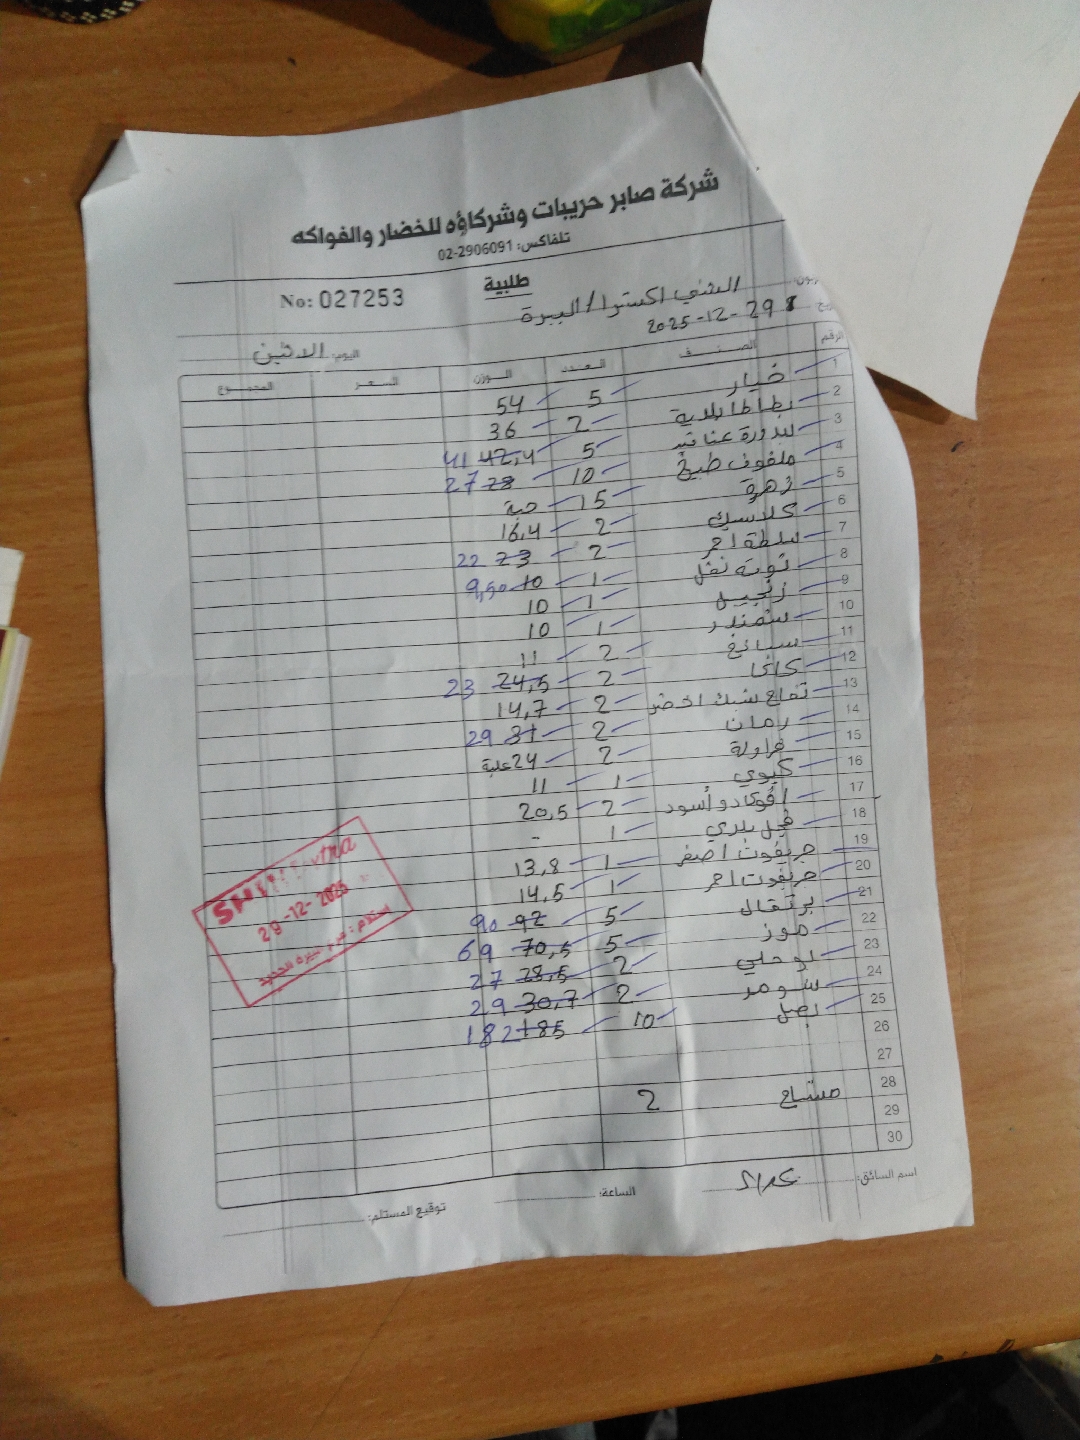 شركة صابر حريبات وشركاؤه للخضار والفواكه
تلفاكس: 02-2906091
طلبية
No: 027253
الشني اكسترا / البيرة
29-12-2025
اليوم: الاثنين
الرقم الصنف العدد الوزن السعر المجموع
1 خيار 5 54
2 بطاطا بلادية 2 36
3 بندورة عناقيد 5 42,4 41
4 ملفوف طبيخ 10 28 27
5 زهرة 15 حبة
6 كلاسيك 2 16,4
7 سلطة احمر 2 23 22
8 توته نفل 1 10 9,50
9 زنجبيل 1 10
10 شمندر 1 10
11 سبانخ 2 11
12 كاكا 2 24,5 23
13 تفاح سبك اخضر 2 14,7
14 رمان 2 31 29
15 فراولة 2 24 علبة
16 كيوي 1 11
17 افوكادو أسود 2 20,5
18 فجل بلدي 1 -
19 جريفوت اصفر 1 13,8
20 جريفوت احمر 1 14,5
21 برتقال 5 92 90
22 موز 5 70,5 69
23 بوملي 2 28,5 27
24 سومر 2 30,7 29
25 بصل 10 185 182
26
27
28 مشتاح 2
29
30
29-12-2025
اسم السائق:
الساعة:
توقيع المستلم: